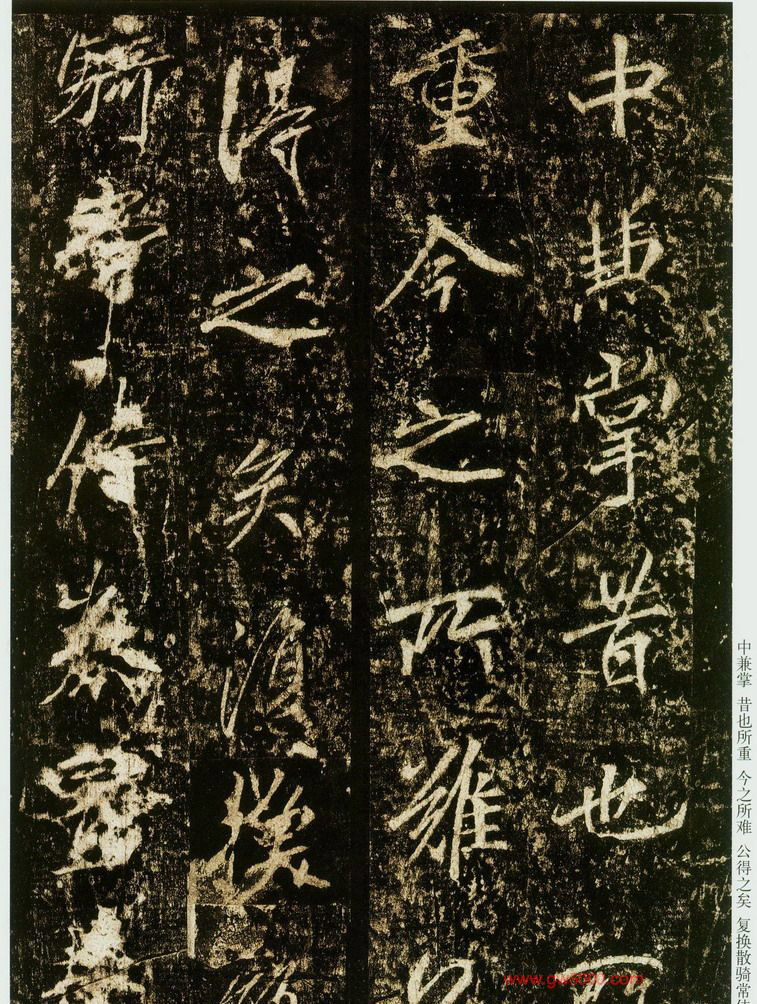 中兼掌昔也所
重今之所難公
得之矣復換散
騎常侍
中兼掌 昔也所重 今之所难 公得之矣 复换散骑常
www.gus000.com